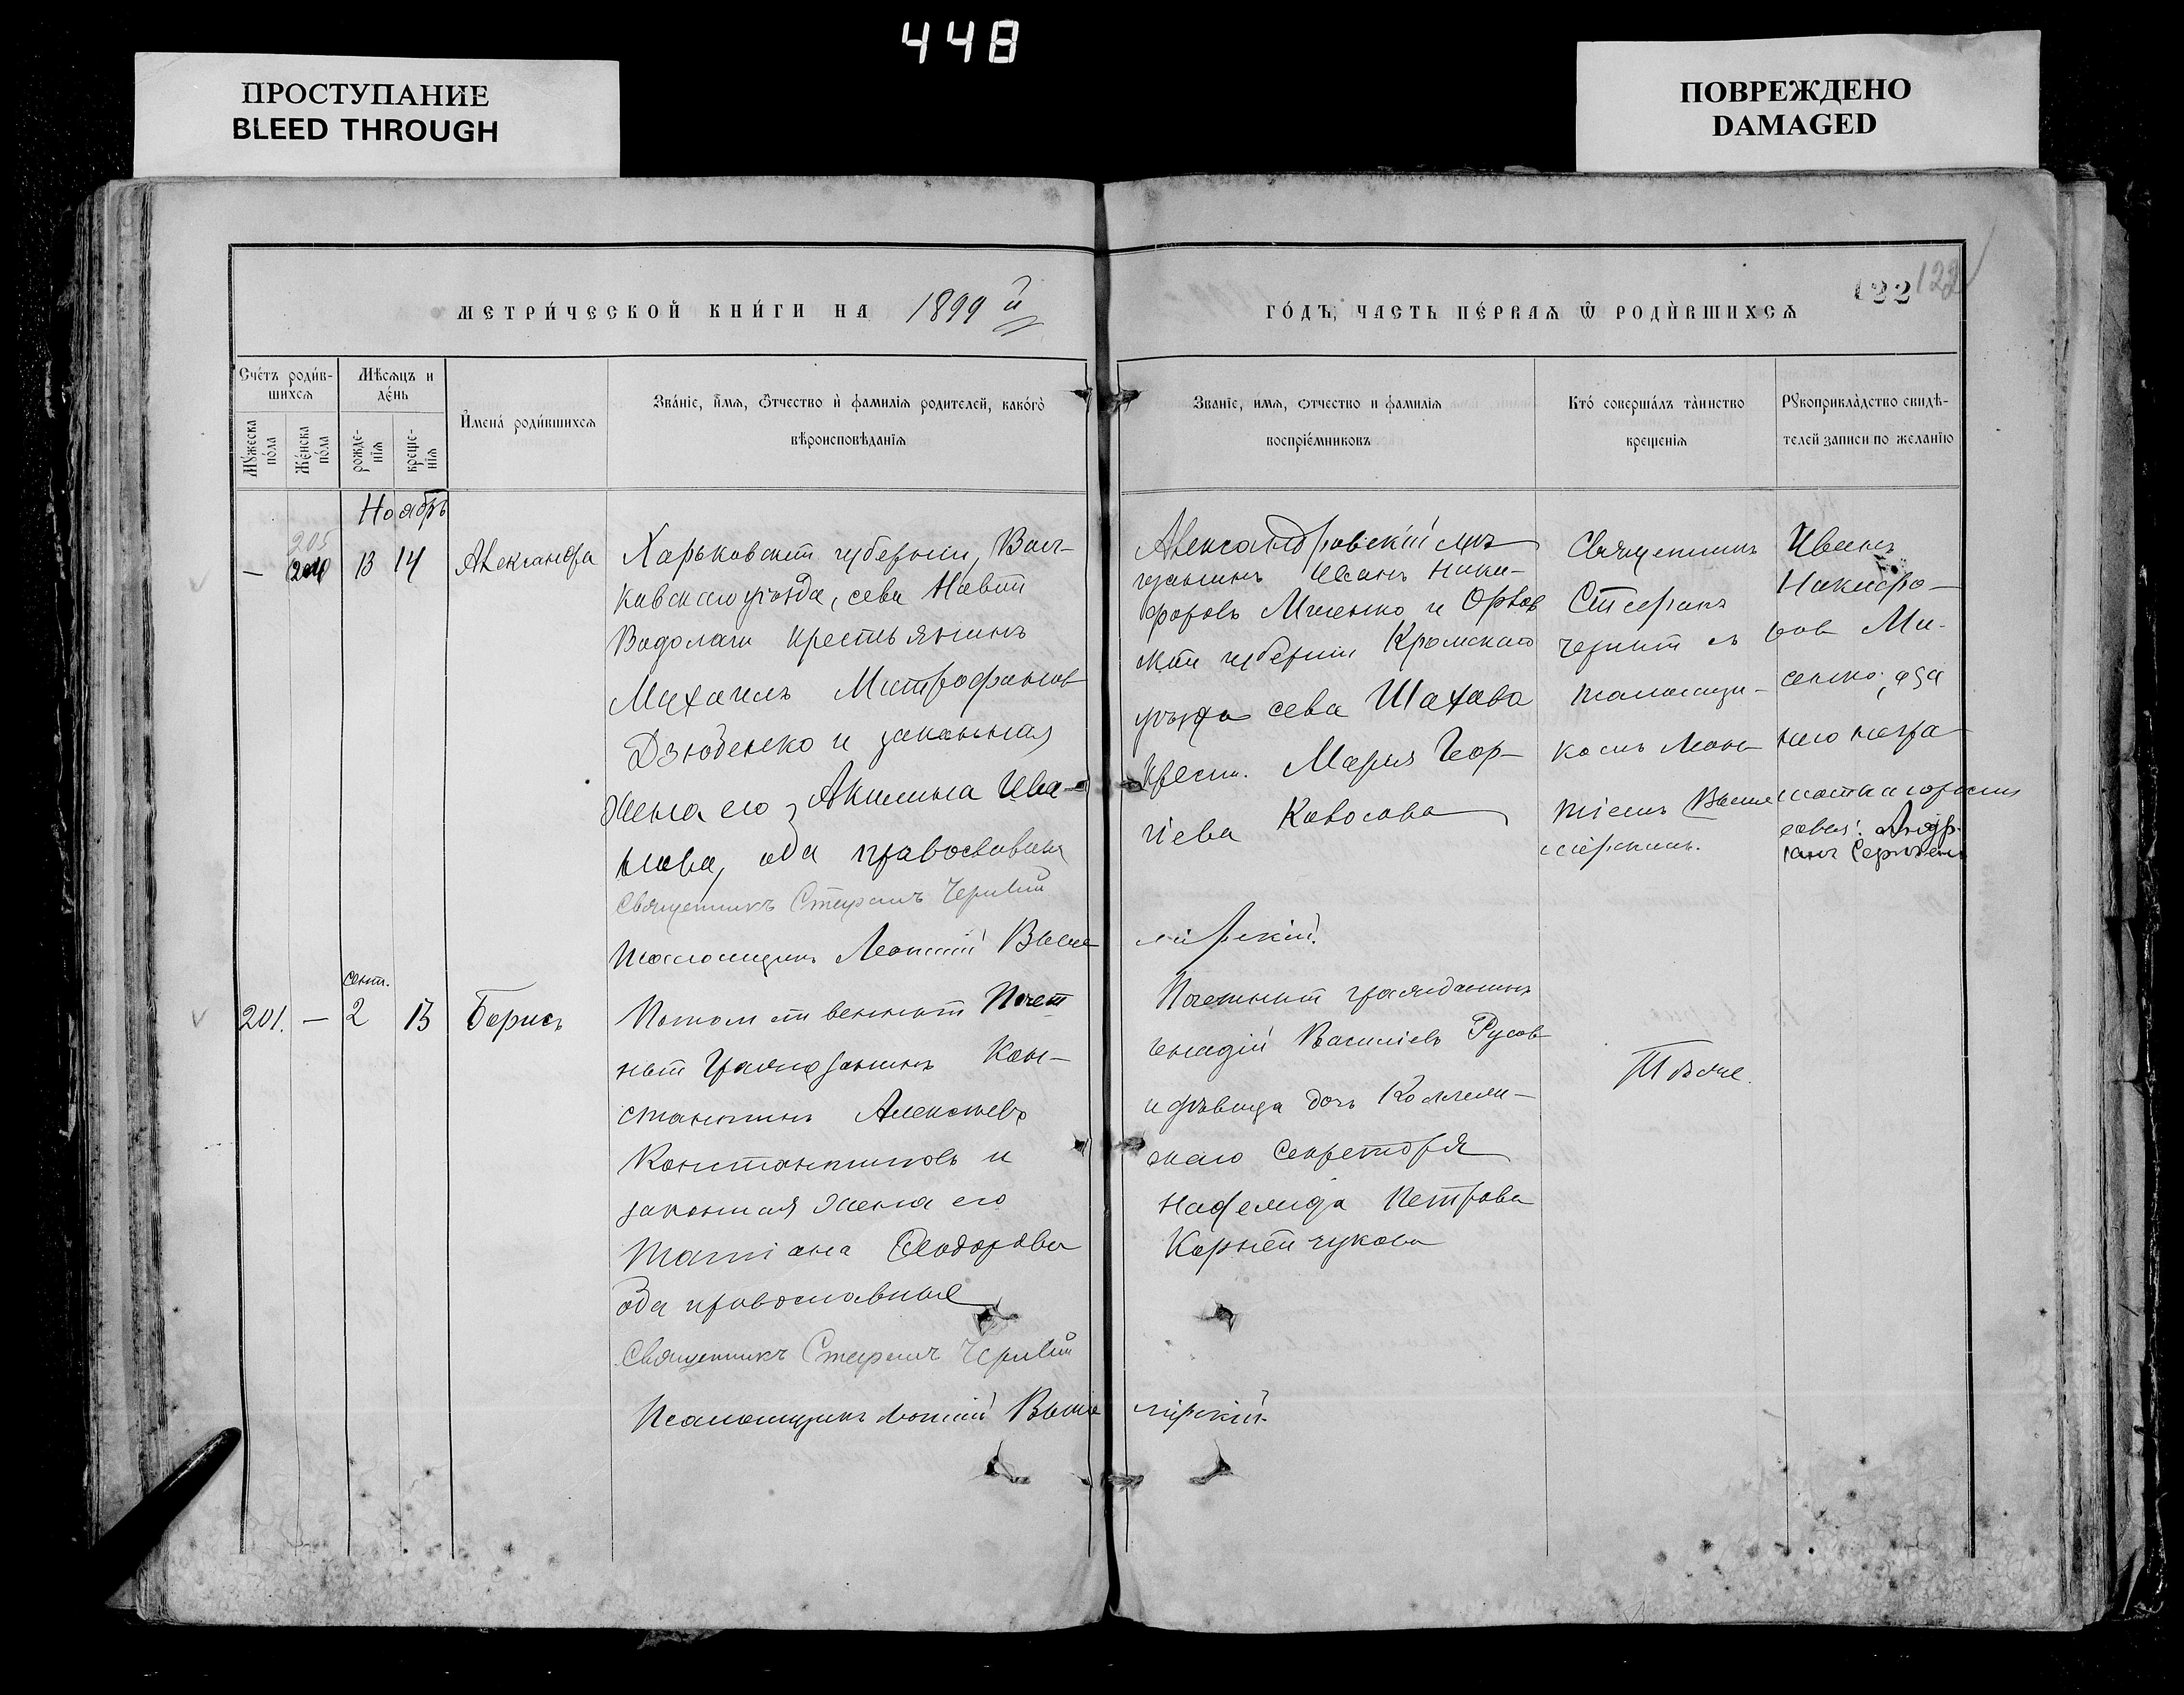 448
ПРОСТУПАНИЕ
BLEED THROUGH
ПОВРЕЖДЕНО
DAMAGED
МЕТРИ́ЧЕСКОЙ КНИ́ГИ НА 1899 й
ГО́ДЪ, ЧАСТЬ ПЕ́РВАѦ Ѡ РОДИ́ВШИХСѦ
122 122
Сче́тъ роди́в-
шихсѧ
Мѣсѧцъ и
де́нь
Мꙋ́жеска
по́ла
Же́нска
по́ла
рожде-
нїѧ
креще-
нїѧ
И҆мена́ роди́вшихсѧ
Зва́нїе, и҆́мѧ, ѻ҆́тчество и҆ фамилїѧ родителей, како́гѡ
вѣроисповѣ́данїѧ
Званїе, имѧ, ѻтчество и фамилїѧ
воспрїе́мниковъ
Кто̀ соверша́лъ та́инство
креще́нїѧ
Рꙋкоприкла́дство свидѣ-
телей записи по желанїю
Ноябрь
205
—
13 14
Александра
Харьковской губернии, Вал-
ковскаго уѣзда, села Новой
Водолаги крестьянинъ
Михаилъ Митрофановъ
Дзюбенко и законная
жена его, Акилина Ива-
нова, оба православные
Священникъ Стефанъ
Псаломщикъ Леонтій Выше
Александровскій мѣ-
щанинъ Иванъ Ники-
форовъ Мисенко и Орлов
ской губерніи Кромскаго
уѣзда села Шахова
крест. Марія Геор-
гіева
мірскій.
Священникъ
Стефанъ
съ
псаломщи-
комъ Леон-
тіемъ Выше
мірскимъ.
Иванъ
Никифо-
ровъ Ми-
сенко, а за
него негра-
201. —
сент.
2 13
Борисъ
Потомственный Почет
ный Гражданинъ Кон-
стантинъ Алексѣевъ
Константиновъ и
законная жена его
Татіана Ѳеодорова
оба православные
Священникъ Стефанъ
Псаломщикъ Леонтій Выше
Почетный гражданинъ
Генадій Василіевъ Русов
и дѣвица дочь Коллеж-
скаго Секретаря
Надежда Петрова
Корнейчукова
мірскій.
Тѣ же.